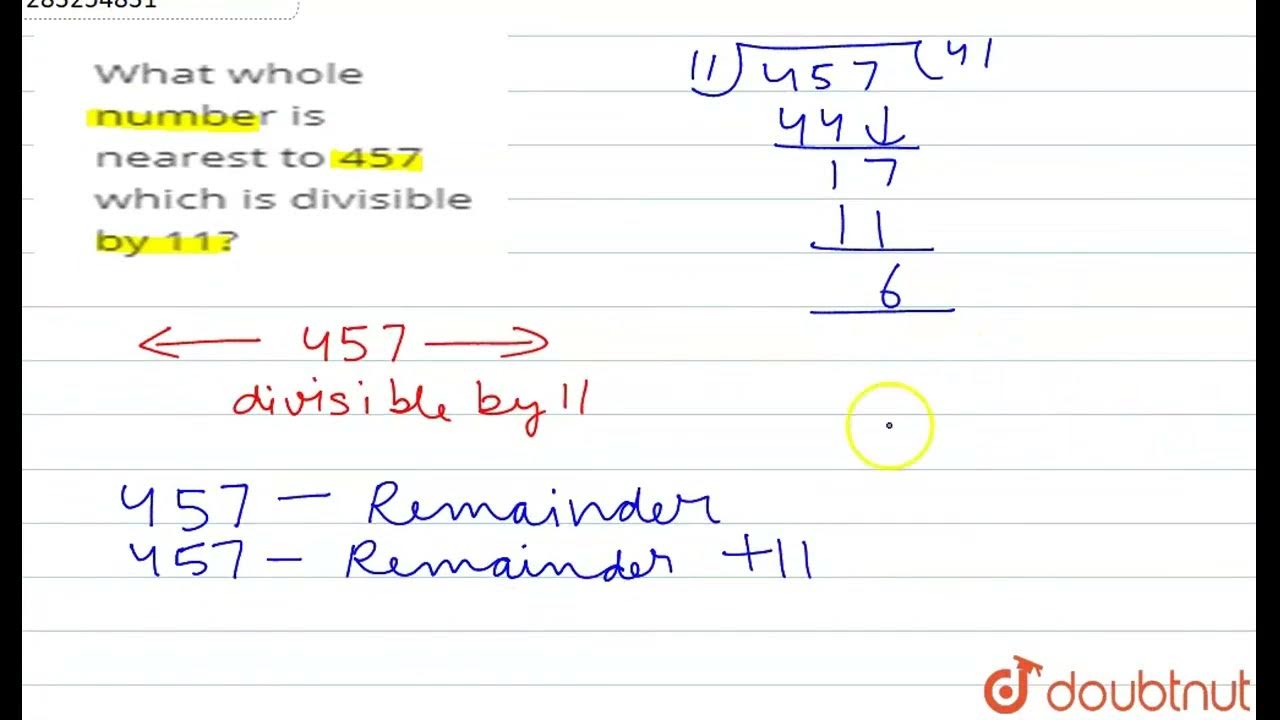 What whole
number is
nearest to 457
which is divisible
by 11?
11 457 41
44
17
11
6
457
divisible by 11
457 - Remainder
457 - Remainder + 11
doubtnut